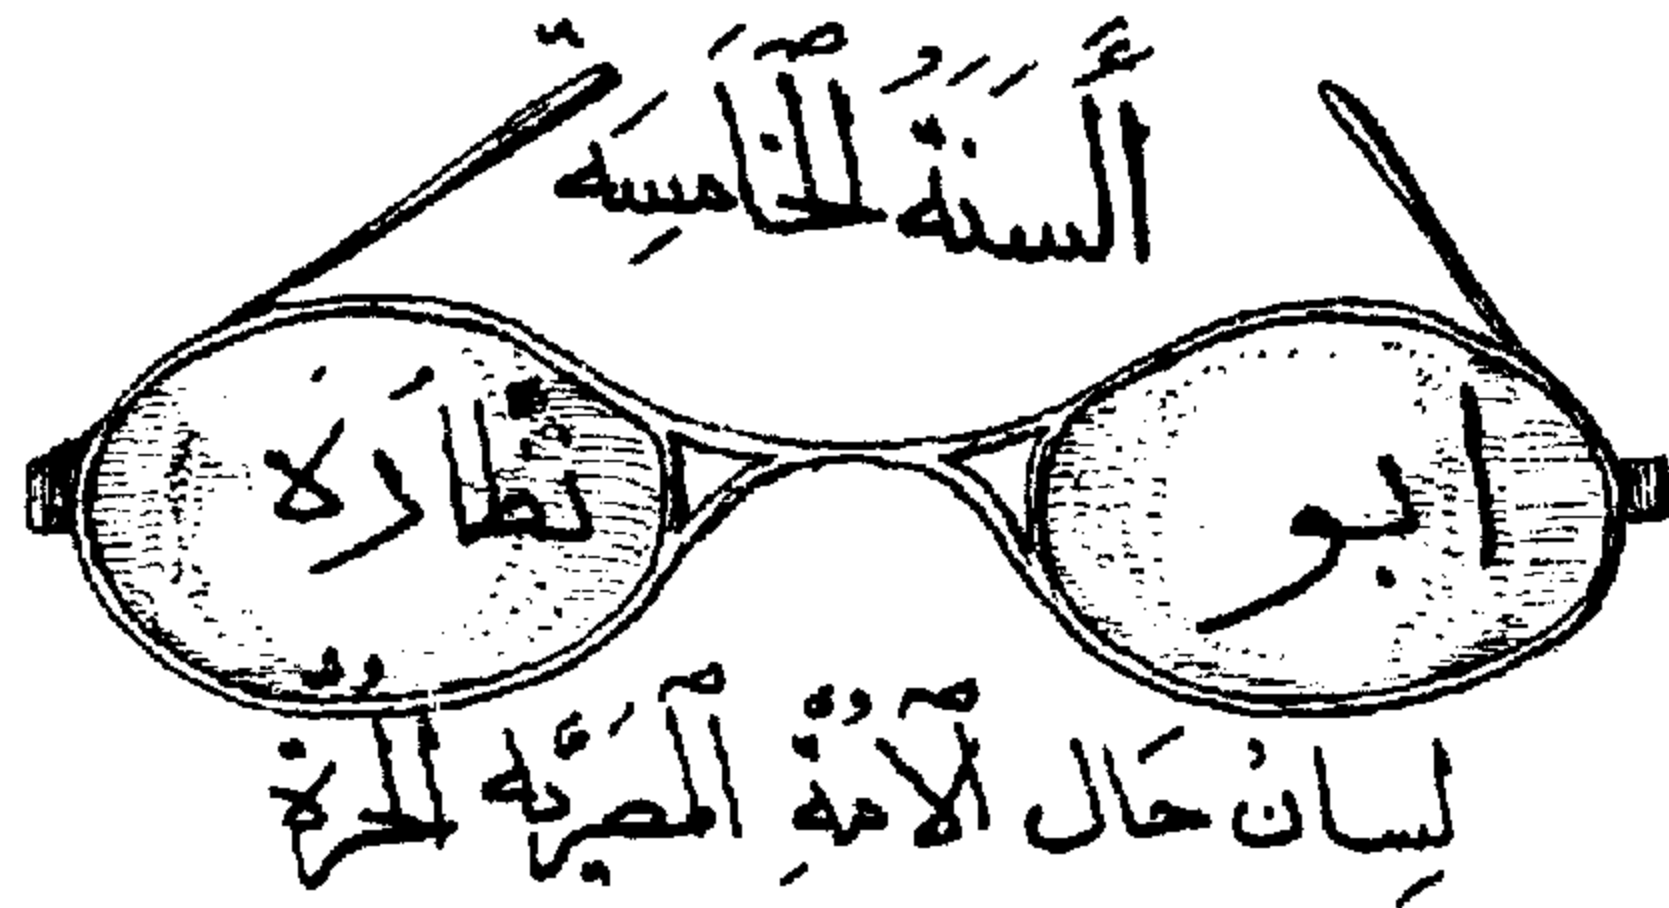 أَلسَنَةُ ٱلخَامِسَه
ابو نظّارَه
لِسانُ حَال ٱلأمةِ ٱلمصريّه الحرة